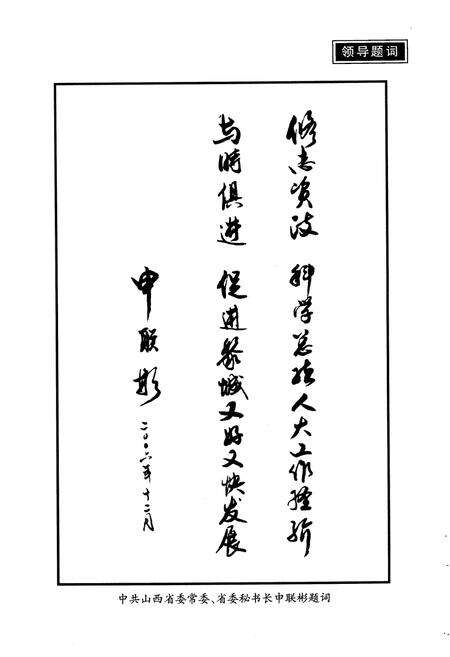 领导题词
修志资政 科学总结人大工作经验
与时俱进 促进黎城又好又快发展
申联彬
二〇〇六年十二月
中共山西省委常委、省委秘书长申联彬题词